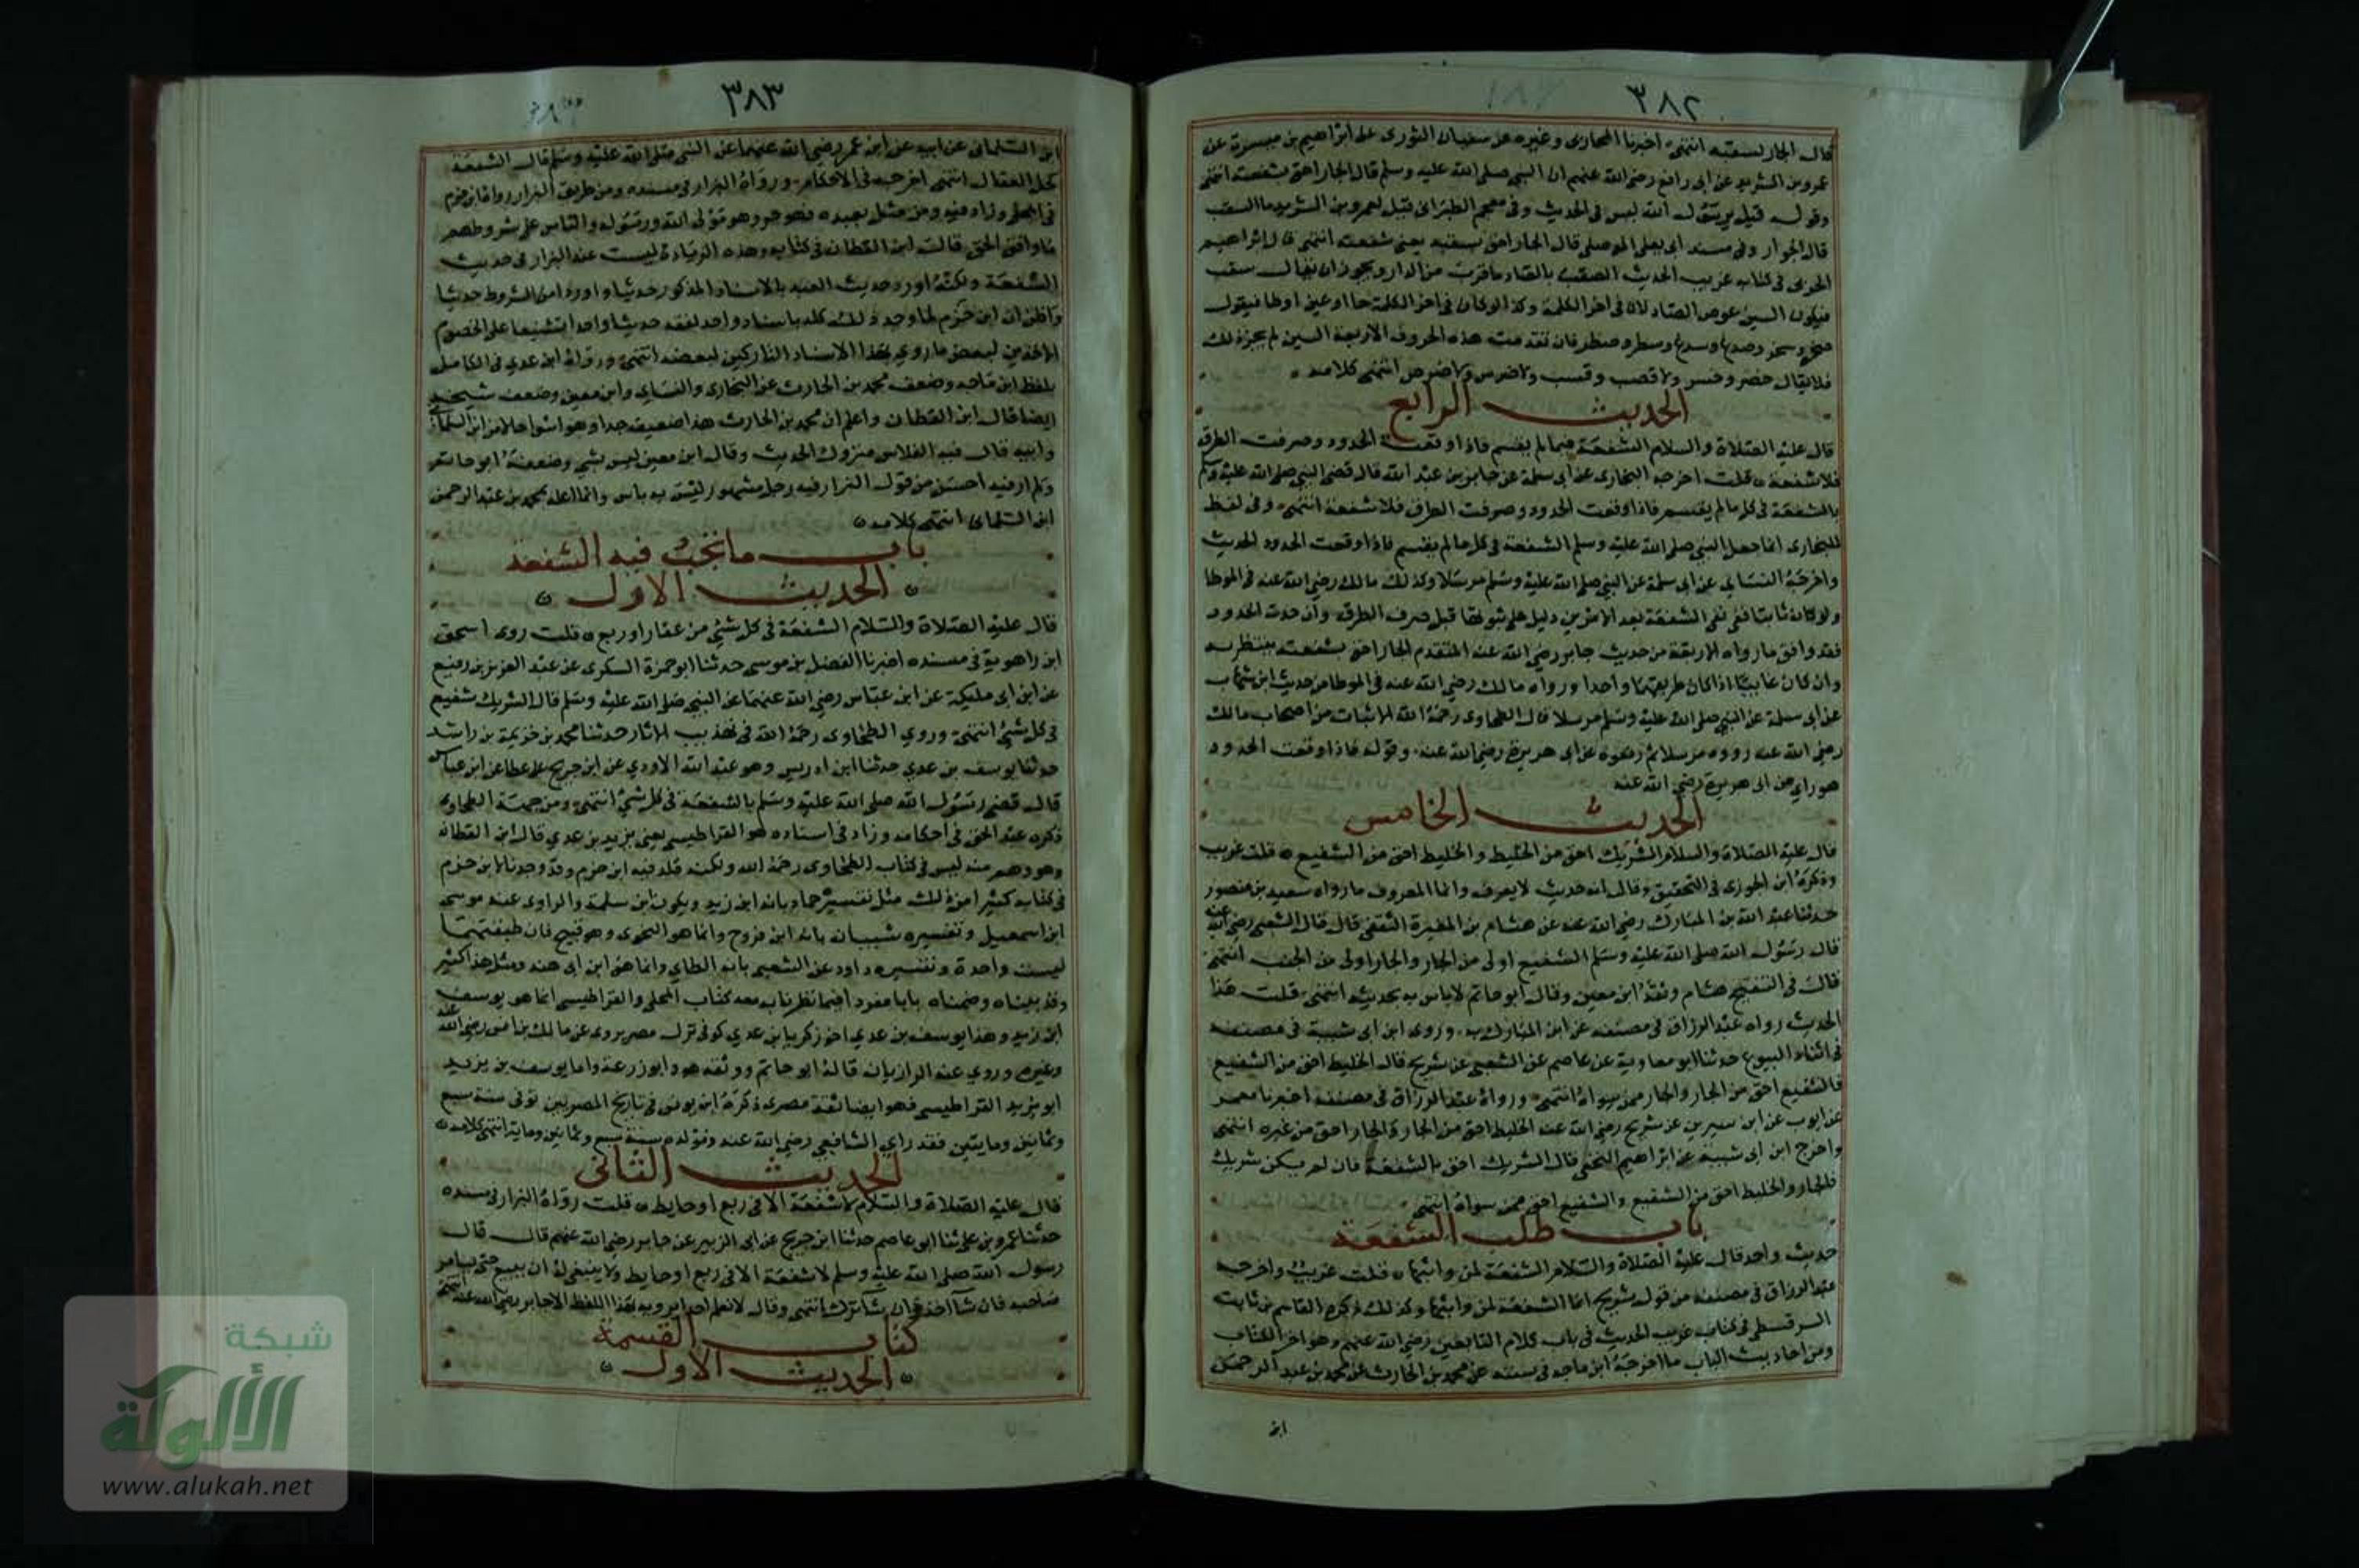 ٣٨٢
قال الجار بسقبه انتهى اخبرنا المحاربى وغيره عن سفيان الثورى عن ابراهيم بن ميسرة عن
عمرو بن الشريد عن ابى رافع رضى الله عنهم ان النبى صلى الله عليه وسلم قال الجار احق بشفعته انتهى
وقوله قيل يرسول الله ليس فى الحديث وفى معجم الطبرانى قيل لعمرو بن الشريد ما السقب
قال الجوار وفى مسند ابى يعلى الموصلى قال الجار احق بسقبه يعنى شفعته انتهى قال ابراهيم
الحربى فى كتابه غريب الحديث الصقب بالصاد ما قرب من الدار ويجوز ان يقال سقب
فيكون السين عوض الصاد لان فى اخر الكلمة وكذا لو كان فى اخر الكلمة خا او غين او طا فيقول
وسخر وصدغ وسدغ وسطر وصطر فان تقدمت هذه الحروف الاربعة السين لم يجز ذلك
فلا يقال خصر وخسر ولا قصب وقسب ولا ضرس ولا ضرص انتهى كلامه
الحديث الرابع
قال عليه الصلاة والسلام الشفعة فيما لم يقسم فاذا وقعت الحدود وصرفت الطرق
فلا شفعة قلت اخرجه البخارى عن ابى سلمة عن جابر بن عبد الله قال قضى النبى صلى الله عليه وسلم
بالشفعة فى كل ما لم يقسم فاذا وقعت الحدود وصرفت الطرق فلا شفعة انتهى وفى لفظ
للبخارى انما جعل النبى صلى الله عليه وسلم الشفعة فى كل ما لم يقسم فاذا وقعت الحدود الحديث
واخرجه النساى عن ابى سلمة عن النبى صلى الله عليه وسلم مرسلا وكذلك مالك رضى الله عنه فى الموطا
ولو كان ثابتا ففى نفى الشفعة بعد الامرين دليل على ثبوتها قبل صرف الطرق وان حدت الحدود
فقد وافق ما رواه الاربعة من حديث جابر رضى الله عنه المتقدم الجار احق بشفعته ينتظر به
وان كان غايبا اذا كان طريقهما واحدا ورواه مالك رضى الله عنه فى الموطا من حديث ابن شهاب
عن ابى سلمة عن النبى صلى الله عليه وسلم مرسلا قال الطحاوى رحمه الله الاثبات من اصحاب مالك
رضى الله عنه رووه مرسلا ثم رفعوه عن ابى هريرة رضى الله عنه وقوله فاذا وقعت الحدود
هو راى من ابى هريرة رضى الله عنه
الحديث الخامس
قال عليه الصلاة والسلام الشريك احق من الخليط والخليط احق من الشفيع قلت غريب
وذكره ابن الجوزى فى التحقيق وقال انه حديث لا يعرف وانما المعروف ما رواه سعيد بن منصور
حدثنا عبد الله بن المبارك رضى الله عنه عن هشام بن المغيرة الثقفى قال قال الشعبى رضى الله عنه
قال رسول الله صلى الله عليه وسلم الشفيع اولى من الجار والجار اولى من الجنب انتهى
قال فى التنقيح هشام وثقه ابن معين وقال ابو حاتم لا باس به بحديثه انتهى قلت هذا
الحديث رواه عبد الرزاق فى مصنفه عن ابن المبارك به وروى ابن ابى شيبة فى مصنفه
فى اثناء البيوع حدثنا ابو معاوية عن عاصم عن الشعبى عن شريح قال الخليط احق من الشفيع
فالشفيع احق من الجار والجار ممن سواه انتهى ورواه عبد الرزاق فى مصنفه اخبرنا معمر
عن ايوب عن ابن سيرين عن شريح رضى الله عنه الخليط احق من الجار والجار احق من غيره انتهى
واخرج ابن ابى شيبة عن ابراهيم النخعى قال الشريك احق بالشفعة فان لم يكن شريك
فالجار والخليط احق من الشفيع والشفيع احق ممن سواه انتهى
باب طلب الشفعة
حديث واحد قال عليه الصلاة والسلام الشفعة لمن واثبها قلت غريب واخرجه
عبد الرزاق فى مصنفه من قول شريح انما الشفعة لمن واثبها وكذلك ذكره القاسم بن ثابت
السرقسطى فى كتاب غريب الحديث فى باب كلام التابعين رضى الله عنهم وهو اخر الكتاب
ومن احاديث الباب ما اخرجه ابن ماجه فى سننه عن محمد بن الحارث عن محمد بن عبد الرحمن
ابن
٣٨٣
ابن السلمانى عن ابيه عن ابن عمر رضى الله عنهما عن النبى صلى الله عليه وسلم قال الشفعة
كحل العقال انتهى اخرجه فى الاحكام ورواه البزار فى مسنده ومن طريق البزار رواه ابن حزم
فى المحلى وزاد فيه ومن مثل بعبده فهو حر وهو مولى الله ورسوله والناس على شروطهم
ما وافق الحق قال ابن القطان فى كتابه وهذه الزيادة ليست عند البزار فى حديث
الشفعة ولكنه اورد حديث العبد بالاسناد المذكور حديثا واورد امر الشروط حديثا
واظن ان ابن حزم لما وجد ذلك كله باسناد واحد لفقه حديثا واحدا تشنيعا على الخصوم
الاخذين لبعض ما روى بهذا الاسناد التاركين لبعضه انتهى ورواه ابن عدى فى الكامل
بلفظ ابن ماجه وضعف محمد بن الحارث عن البخارى والنساى وابن معين وضعف شيخه
ايضا قال ابن القطان واعلم ان محمد بن الحارث هذا ضعيف جدا وهو اسوا حالا من ابن السلمانى
وابيه قال فيه الفلاس متروك الحديث وقال ابن معين ليس بشى وضعفه ابو حاتم
ولم ار فيه احسن من قول البزار فيه رجل مشهور ليس به باس وانما اعله بمحمد بن عبد الرحمن
ابن السلمانى انتهى كلامه
باب ما تجب فيه الشفعة
الحديث الاول
قال عليه الصلاة والسلام الشفعة فى كل شئ من عقار او ربع قلت روى اسحق
ابن راهوية فى مسنده اخبرنا الفضل بن موسى حدثنا ابو حمزة السكرى عن عبد العزيز بن رفيع
عن ابن ابى مليكة عن ابن عباس رضى الله عنهما عن النبى صلى الله عليه وسلم قال الشريك شفيع
فى كل شئ انتهى وروى الطحاوى رحمه الله فى تهذيب الاثار حدثنا محمد بن خزيمة بن راشد
حدثنا يوسف بن عدى حدثنا ابن ادريس وهو عبد الله الاودى عن ابن جريج عن عطا عن ابن عباس
قال قضى رسول الله صلى الله عليه وسلم بالشفعة فى كل شئ انتهى ومن جهة الطحاوى
ذكره عبد الحق فى احكامه وزاد فى اسناده هو القراطيسى يعنى يزيد بن عدى قال ابن القطان
وهو وهم منه ليس فى كتاب الطحاوى رحمه الله ولكنه قلد فيه ابن حزم وقد وجدنا لابن حزم
فى كتابه كثيرا من ذلك مثل تفسيره حماد بانه ابن زيد ويكون ابن سلمة والراوى عنه موسى
ابن اسمعيل وتفسيره شيبان بانه ابن فروخ وانما هو النحوى وهو قبيح فان طبقتهما
ليست واحدة وتفسيره داود عن الشعبى بانه الطاى وانما هو ابن ابى هند ومثل هذا كثير
وقد بيناه وضمناه بابا مفردا فيما نظرنا به معه كتاب المحلى والقراطيسى انما هو يوسف
ابن زيد وهذا يوسف بن عدى اخو زكريا بن عدى كوفى نزل مصر يروى عن مالك بن انس رضى الله عنه
وغيره وروى عنه الرازيان قاله ابو حاتم ووثقه هو وابو زرعة واما يوسف بن يزيد
ابو يزيد القراطيسى فهو ايضا ثقة مصرى ذكره ابن يونس فى تاريخ المصريين توفى سنة سبع
وثمانين ومايتين فقد راى الشافعى رضى الله عنه ومولده سنة سبع وثمانين وماية انتهى كلامه
الحديث الثانى
قال عليه الصلاة والسلام لا شفعة الا فى ربع او حايط قلت رواه البزار فى مسنده
حدثنا عمرو بن على ثنا ابو عاصم حدثنا ابن جريج عن ابى الزبير عن جابر رضى الله عنهم قال قال
رسول الله صلى الله عليه وسلم لا شفعة الا فى ربع او حايط ولا ينبغى له ان يبيع حتى يستامر
صاحبه فان شا اخذ وان شا ترك انتهى وقال لا نعلم احدا يرويه بهذا اللفظ الا جابر رضى الله عنه انتهى
كتاب القسمة
الحديث الاول
شبكة
الألوكة
www.alukah.net